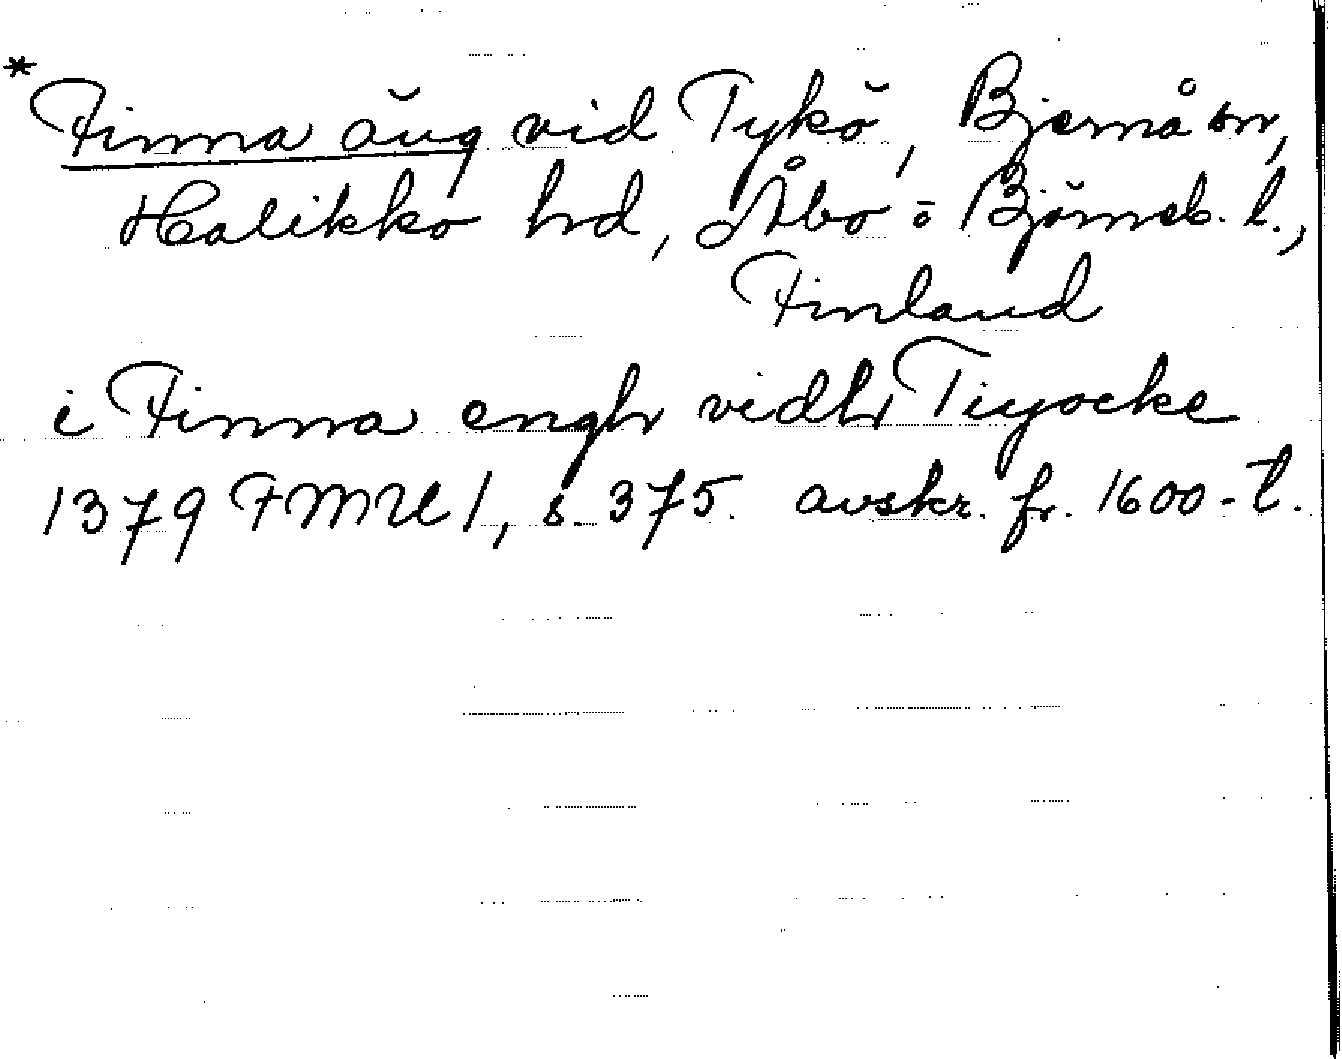 * Finna äng vid Tykö, Bjernå sn,
Halikko hd, Åbo o Björneb. l.,
Finland
i Finna engh vidh Tiyocke
1379 FMU 1, s. 375. avskr. fr. 1600-t.